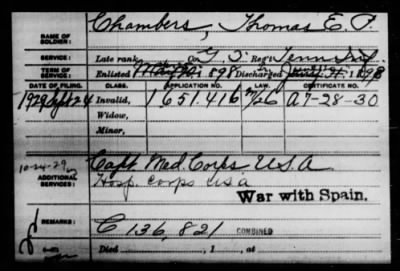 NAME OF SOLDIER: Chambers, Thomas E. P.
SERVICE: Late rank, Co. G, 3" Reg't Tenn Inf.
TERM OF SERVICE: Enlisted 1898 Discharged 1898
DATE OF FILING. CLASS. APPLICATION NO. LAW. CERTIFICATE NO.
1929 Sept 24 Invalid, 1651.416 A7-28-30
Widow,
Minor,
10-24-29
ADDITIONAL SERVICES: Capt. Med. Corps U.S.A.
Hosp. Corps USA
War with Spain.
REMARKS: C 136,821 COMBINED
Died , 1 , at